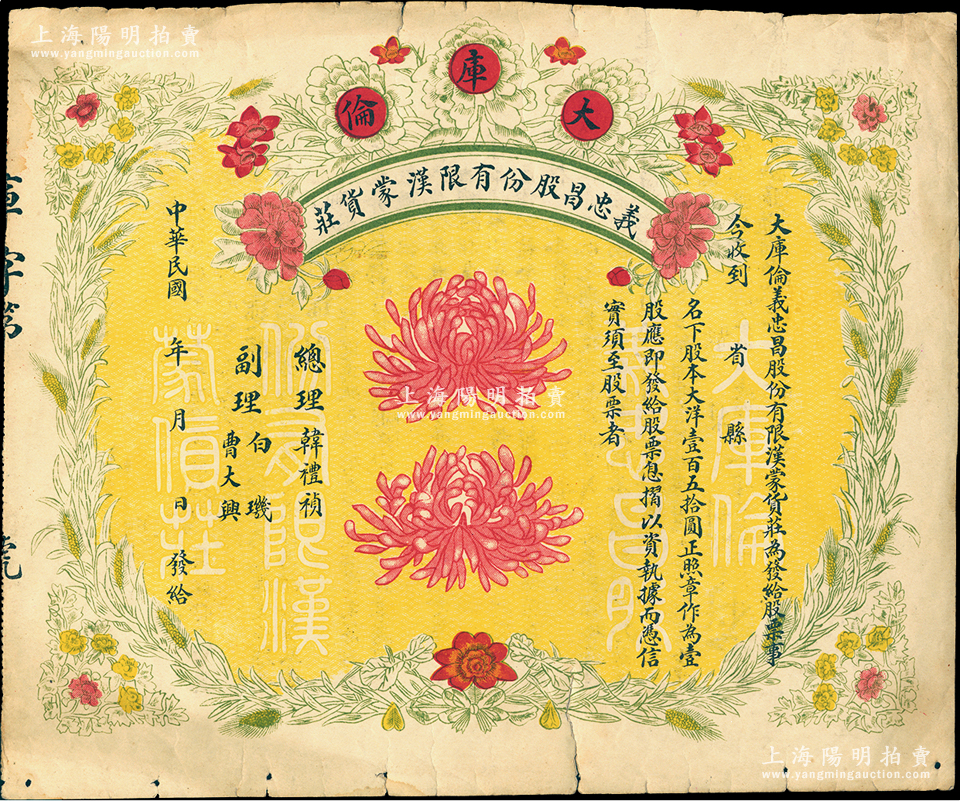 上海陽明拍賣
www.yangmingauction.com
大庫倫
義忠昌股份有限漢蒙貨莊
大庫倫義忠昌股份有限漢蒙貨莊為發給股票事
今收到　省　縣
名下股本大洋壹百五拾圓正照章作為壹
股應即發給股票息摺以資執據而憑信
實須至股票者
總理韓禮禎
副理伯璣
曹大興
中華民國　年　月　日發給
字第　號
大庫倫
義忠昌股
份有限漢
蒙貨莊
上海陽明拍賣
www.yangmingauction.com
上海陽明拍賣
www.yangmingauction.com